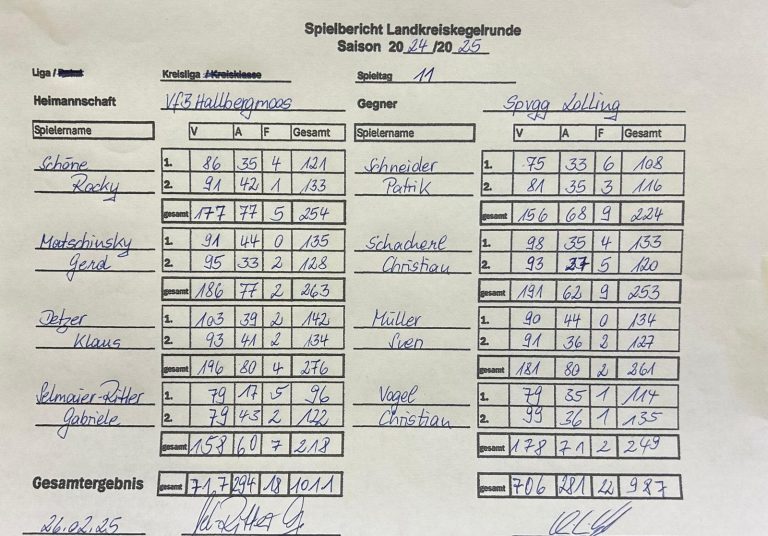 Spielbericht Landkreiskegelrunde
Saison 20 24 /20 25
Liga / Kreisliga / Kreisklasse Spieltag 11
Heimannschaft VfB Hallbergmoos Gegner Spvgg Zolling
Spielername V A F Gesamt Spielername V A F Gesamt
Schöne 1. 86 35 4 121 Schneider 1. 75 33 6 108
Rocky 2. 91 42 1 133 Patrik 2. 81 35 3 116
gesamt 177 77 5 254 gesamt 156 68 9 224
Matschinsky 1. 91 44 0 135 Schacherl 1. 98 35 4 133
Gerd 2. 95 33 2 128 Christian 2. 93 27 5 120
gesamt 186 77 2 263 gesamt 191 62 9 253
Detzer 1. 103 39 2 142 Müller 1. 90 44 0 134
Klaus 2. 93 41 2 134 Sven 2. 91 36 2 127
gesamt 196 80 4 276 gesamt 181 80 2 261
Selmaier-Ritter 1. 79 17 5 96 Vogel 1. 79 35 1 114
Gabriele 2. 79 43 2 122 Christian 2. 99 36 1 135
gesamt 158 60 7 218 gesamt 178 71 2 249
Gesamtergebnis gesamt 717 294 18 1011 gesamt 706 281 22 987
26.02.25